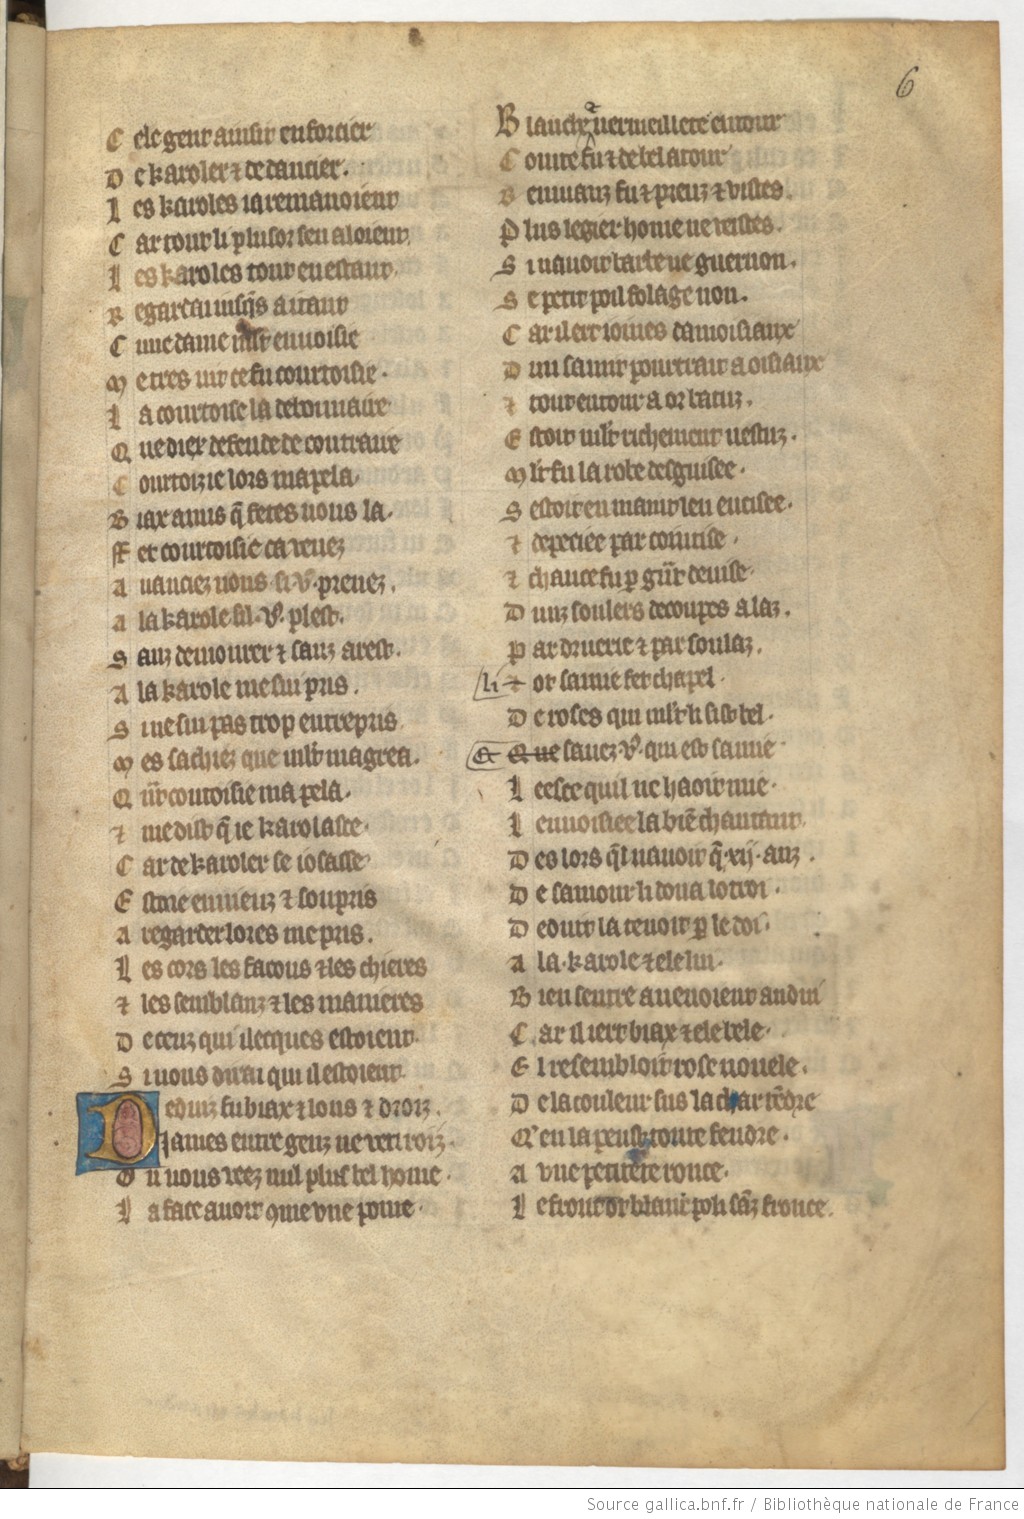 6
C ele gent ainsin enforcier
D e karoler ⁊ de dancier.
L es karoles ia remanoient
C ar tout li plusor sen aloient
L es karoles tout en estant
R egardai iusq̃s a itant
C une dame mlt̃ enuoisie
M e tresuit ce fu courtoisie.
L a courtoise la debonnaire
Q ue diex defende de contraire
C ourtoizie lors mapela
B iax amis q̃ fetes uous la.
F et courtoisie ca uenez
A uanciez uous si v̾ prenez.
A la karole sil v̾ plest.
S anz demourer ⁊ sanz arest.
A la karole me sui pris.
S i ne sui pas trop entrepris
M es sachiez que mlt̃ magrea.
Q ñt coutoisie mapela.
⁊ me dist q̃ ie karolasse.
C ar de karoler se iosasse
E stoie enuieuz ⁊ soupris
A regarder lores me pris.
L es cors les facons ⁊ les chieres
⁊ les semblanz ⁊ les manieres
D e ceuz qui ilecques estoient
S i uous dirai qui il estoient
D eduiz fu biax ⁊ lons ⁊ droiz.
Iames entre genz ne uerroiz.
O u uous ueez nul plus bel home
L a face auoit 9me vne pome.
B lanche uermeillete entour
C ointe fu ⁊ de bel atour
B eniauz fu ⁊ preuz ⁊ uistes.
P lus legier home ne ueistes.
S i nauoit barbe ne guernon.
S e petit poil folage non.
C ar il ert ioines damoisiaux
D un samit pourtrait a oisiaux
⁊ tout entour a or batuz.
E stoit mlt̃ richement uestuz.
M lt̃ fu la robe desguisee.
S estoit en maint leu encisee.
⁊ depeciee par cointise.
⁊ chauce fu p̱ gñt deuise.
D uns soulers decoupes a laz.
P ar druerie ⁊ par soulaz.
li ⁊ or samie fet chapel.
D e roses qui mlt̃ li sist bel.
Et Que sauez v̾ qui est samie
L eesce qui ne haoit mie.
L enuoisiee la biẽ chantant
D es lors q̃l nauoit q̃ .xij. anz.
D e samour li dona lotroi.
D eduit la tenoit p̱ le doi.
A la karole ⁊ ele lui.
B ien sentre auenoient andui
C ar il iert biax ⁊ ele bele.
E l resembloit rose nouele.
D e la couleur sus la char tẽdre
Q̾ en la peust toute fendre.
A vne petitete ronce.
L e front ot blanc poli sãz fronce.
Source gallica.bnf.fr / Bibliothèque nationale de France